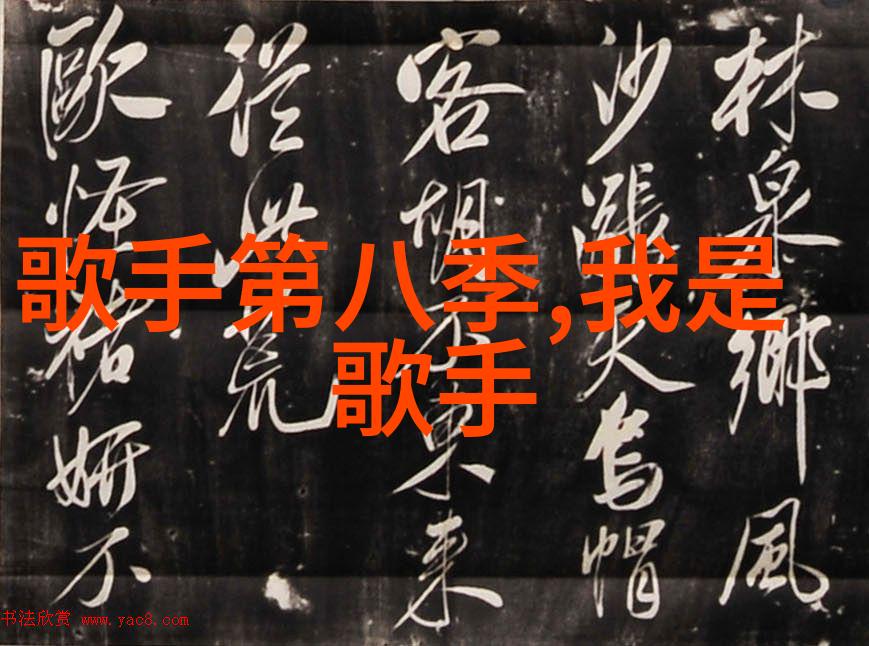 歌手第八季,我是
歌手
林泉鄉風
沙漲天烏帽
客胡不東來
從荒
歐怪褚妍不
书法欣赏 www.yac8.com